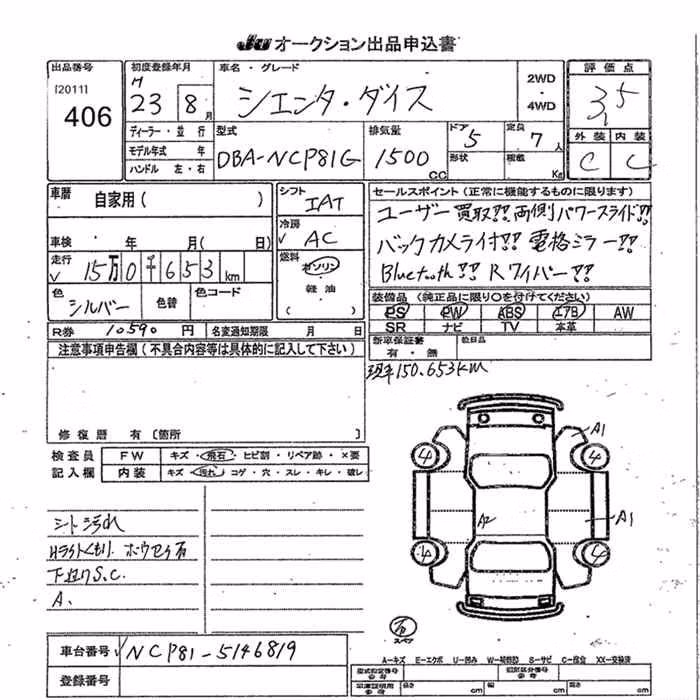 JU オークション出品申込書
出品番号 初度登録年月 車名・グレード 2WD ・ 4WD 評価点
[2011] 406 H 23 8月 シエンタ・ダイス 3.5
ディーラー・並行 型式 排気量 ドア 定員 外装 内装
モデル年式 年 DBA-NCP81G 1500 CC 5 7人 C C
ハンドル 左・右 形状 積載 Kg
車歴 自家用( ) シフト IAT セールスポイント(正常に機能するものに限ります)
冷房 AC ユーザー買取!! 両側パワースライド!!
車検 年 月( 日) バックカメラ付!! 電格ミラー!!
走行 15万0千653km 燃料 ガソリン 軽油 ( ) Bluetooth!! Rワイパー!!
色 シルバー 色替 色コード 装備品(純正品に限り○を付けてください)
PS PW ABS エアB AW
R券 10590円 名変通知期限 月 日 SR ナビ TV 本革
注意事項申告欄(不具合内容等は具体的に記入して下さい) 新車保証書 有・無
現車150.653km
修復歴 有〔箇所 〕
検査員 FW キズ・飛石・ヒビ割・リペア跡・×要
記入欄 内装 キズ・汚れ・コゲ・穴・スレ・キレ・破レ
A1
4 4
A2 A1
4 4
シート汚れ
Hライトくもり.
下廻りS.C.
A.
スペア
車台番号 NCP81-5146819
A-キズ E-エクボ U-凹み S-サビ C-腐食 XX-交換済
登録番号
長さ cm 幅 cm 高さ cm